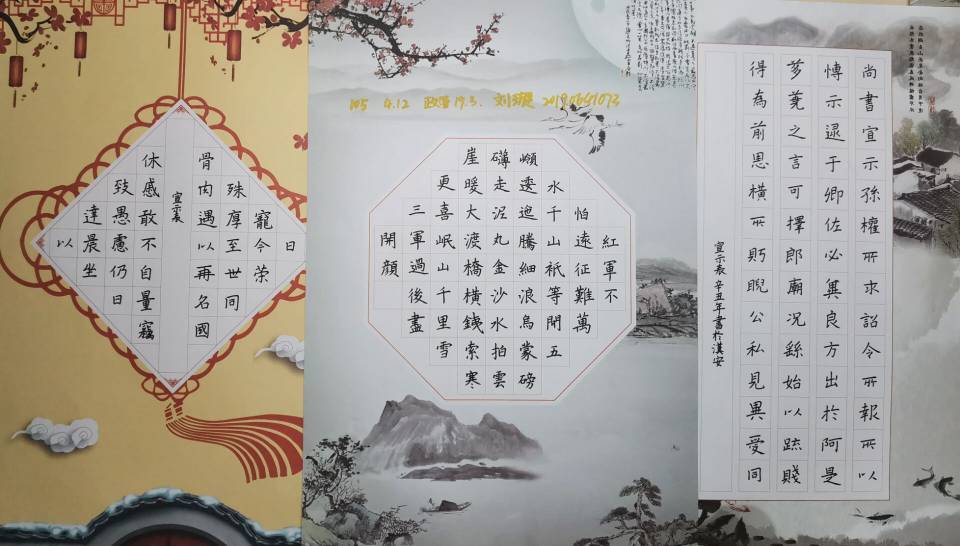 日
寵令榮
殊厚至世同
骨肉遇以再名國
宣示表
休戚敢不自量竊
致愚慮仍日
達晨坐
以
105 4.12 政管19.3. 刘璇
紅軍不
怕遠征難萬
水千山祇等閒五
嶺逶迤騰細浪烏蒙磅
礴走泥丸金沙水拍雲
崖暖大渡橋橫鐵索寒
更喜岷山千里雪
三軍過後盡
開顏
尚書宣示孫權所求詔令所報所以
愽示逮于卿佐必冀良方出於阿是
芻蕘之言可擇郎廟況繇始以疏賤
得為前恩橫所眄睨公私見異受同
宣示表 辛丑年書於漢安